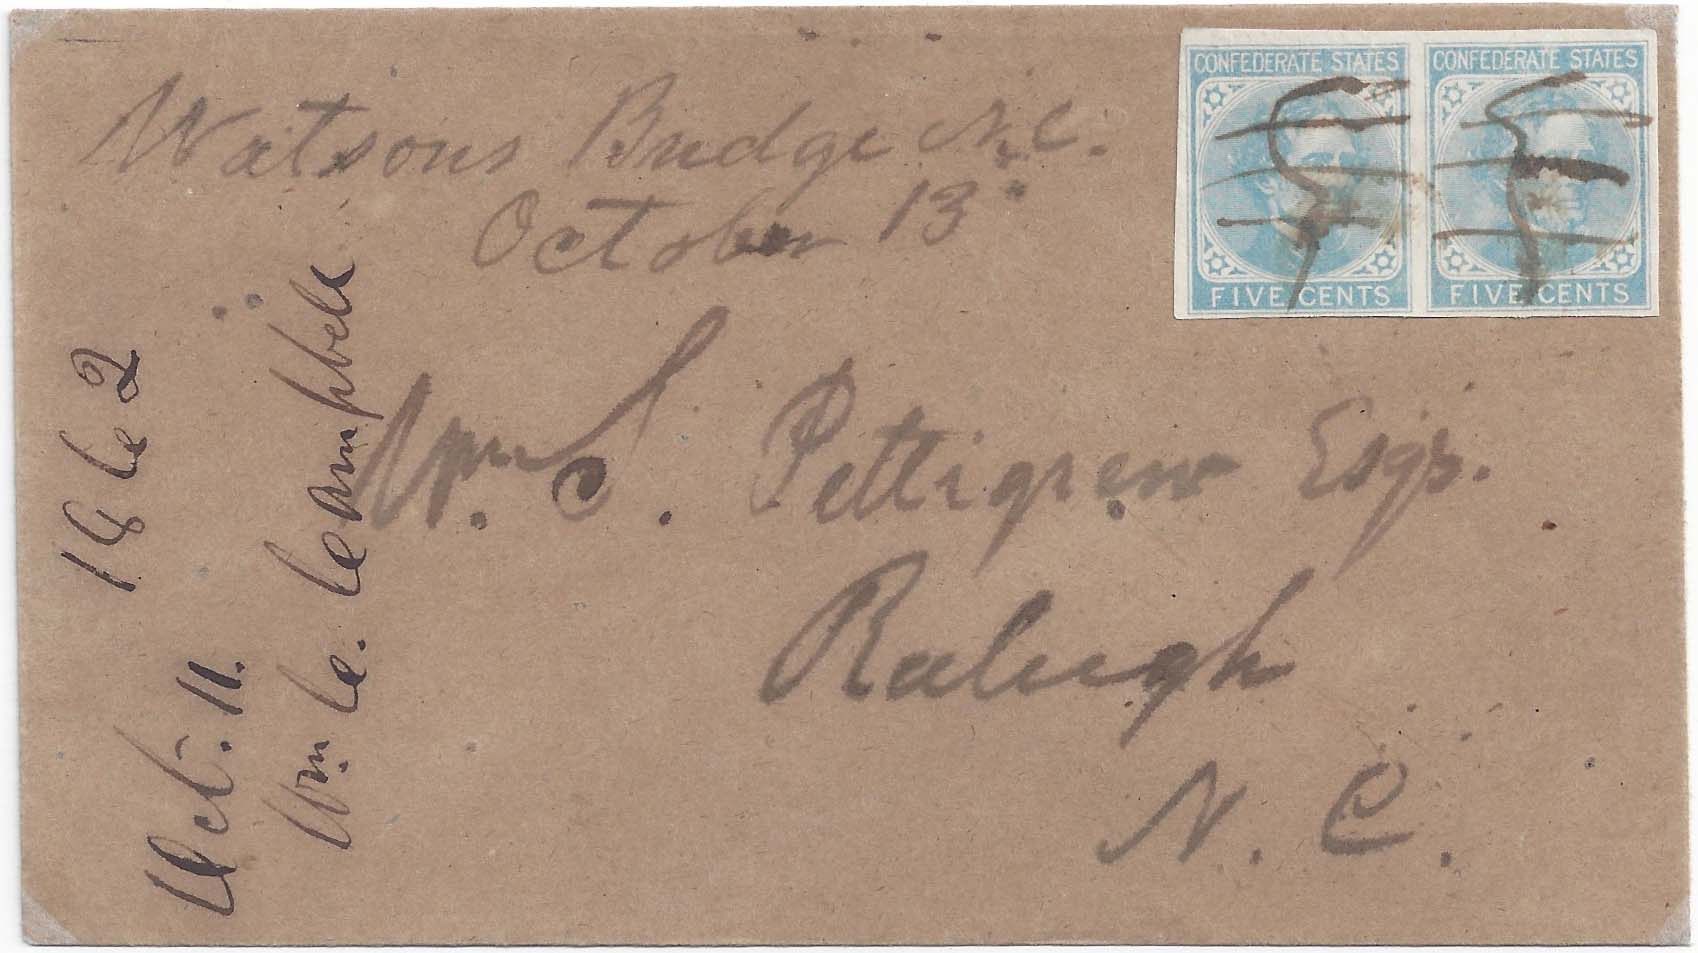 Watsons Bridge N.C.
October 13"
CONFEDERATE STATES
FIVE CENTS
CONFEDERATE STATES
FIVE CENTS
Wm. S. Pettigrew Esqr.
Raleigh
N. C.
Oct. 11. 1862
Wm. C. Campbell